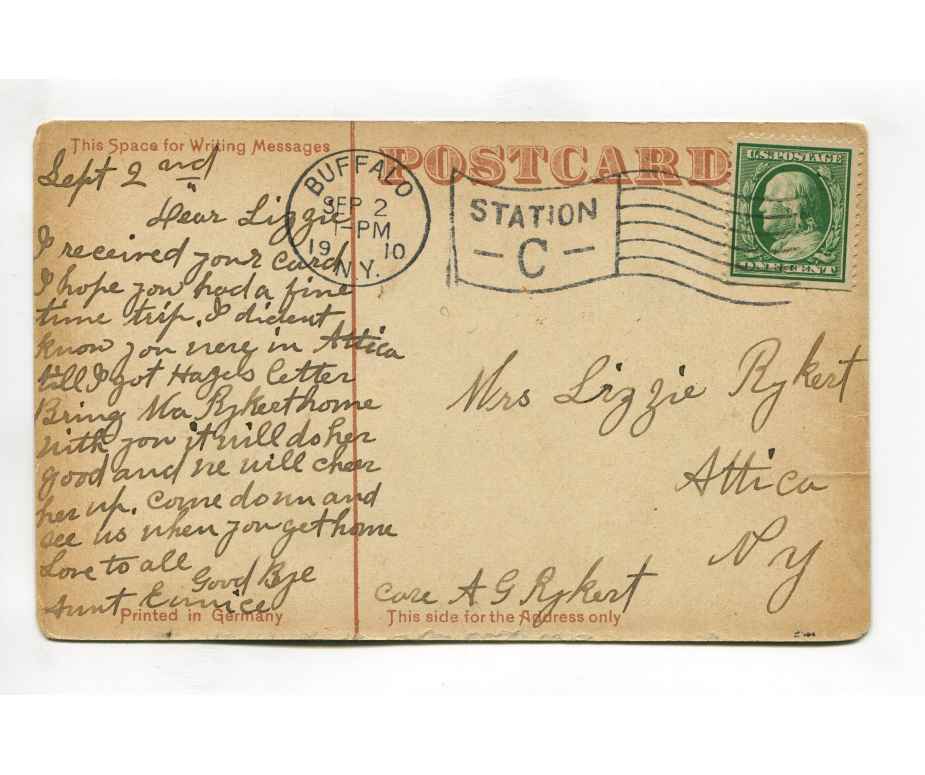 This Space for Writing Messages
Sept 2nd
Dear Lizzie
I received your card
I hope you had a fine
time trip. I dident
know you were in Attica
till I got Hazels letter
Bring Ma Rykert home
with you it will do her
good and we will cheer
her up. Come down and
see us when you get home
Love to all
Good Bye
Aunt Eunice
Printed in Germany
POSTCARD
BUFFALO
SEP 2
1-PM
19 10
N.Y.
STATION
- C -
U.S. POSTAGE
ONE CENT
Mrs Lizzie Rykert
Attica
N y
care A G Rykert
This side for the Address only